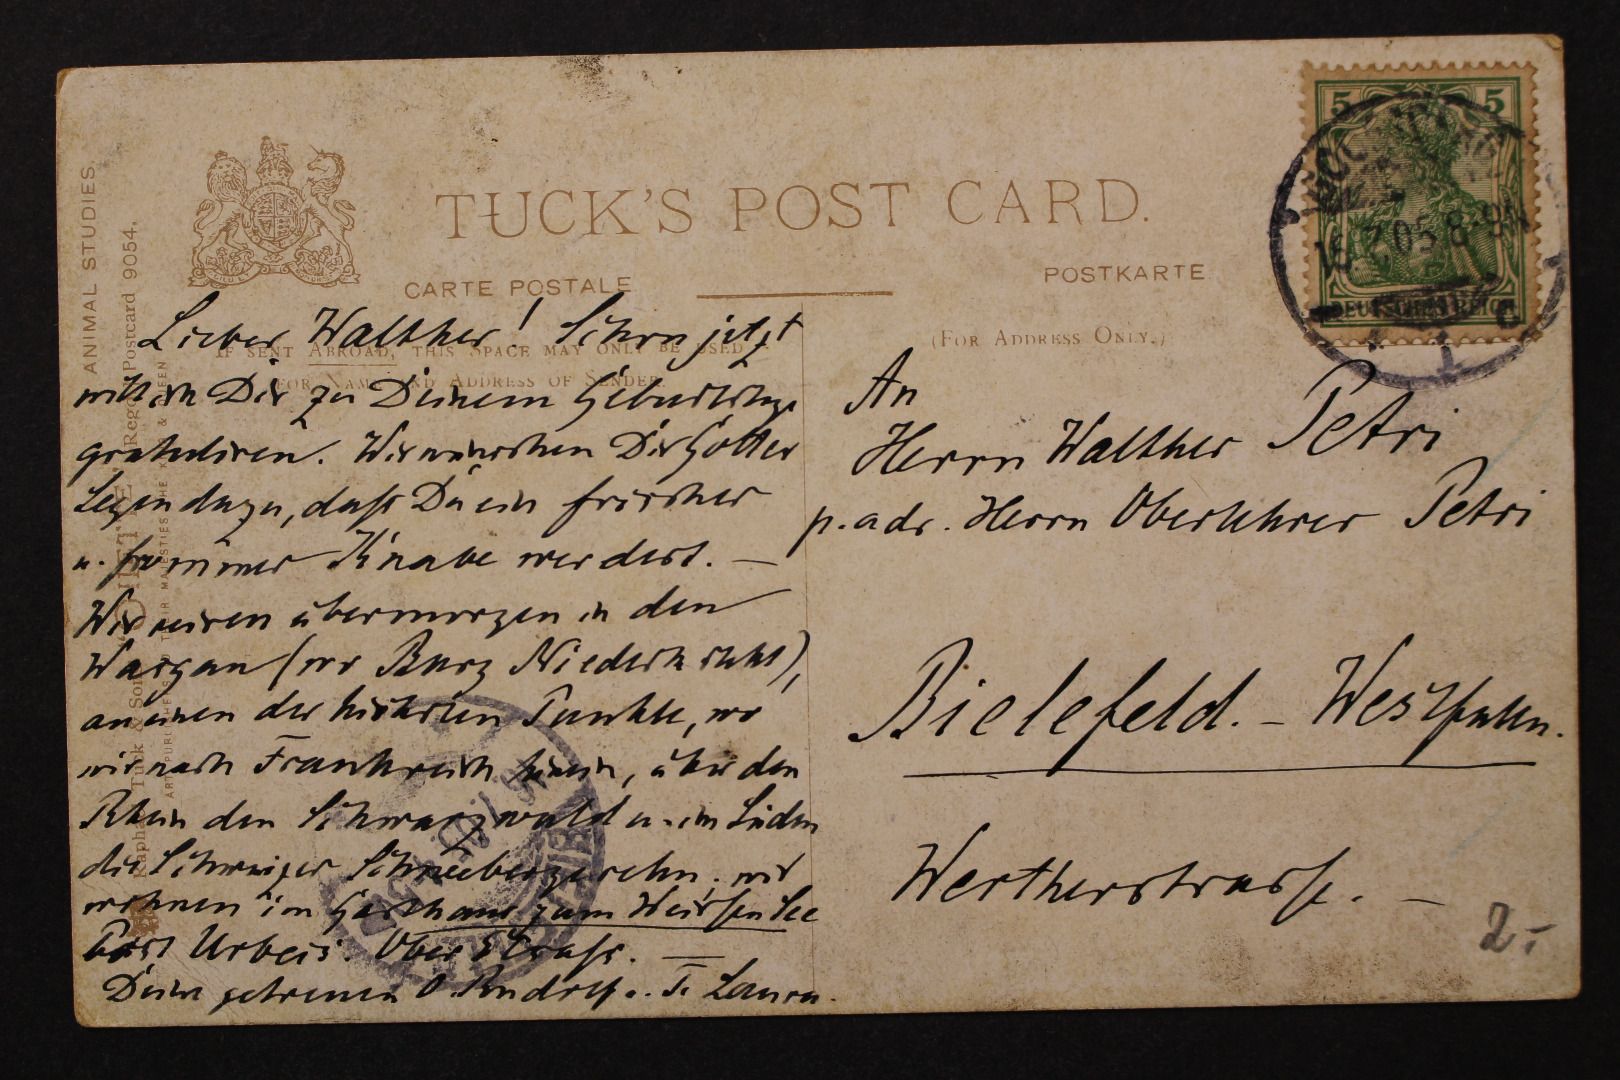 TUCK'S POST CARD.
CARTE POSTALE
POSTKARTE
IF SENT ABROAD, THIS SPACE MAY ONLY BE USED
FOR NAME AND ADDRESS OF SENDER.
(FOR ADDRESS ONLY.)
ANIMAL STUDIES.
Postcard 9054.
Raphael Tuck & Sons
Lieber Walther! Schon jetzt
will ich Dir zu Deinem Geburtstage
gratuliren. Wir wünschen Dir Gottes
Segen dazu, daß Du ein frischer
u. frommer Knabe werdest. —
Wir reisen übermorgen in den
Wasgau (wo Burg Niedeck steht),
an einen der höchsten Punkte, wo
wir nach Frankreich hinein, über den
Rhein den Schwarzwald u. im Süden
die Schweizer Schneeberge sehn; wir
wohnen im Gasthaus zum Weißen See
Post Urbeis. Ober Elsaß. —
Deine getreuen O. Rudolf u. T. Laura.
5 5
DEUTSCHES REICH
05 8-9N
An
Herrn Walther Petri
p. adr. Herrn Oberlehrer Petri
Bielefeld. - Westfalen.
Wertherstrasse. -
2.-